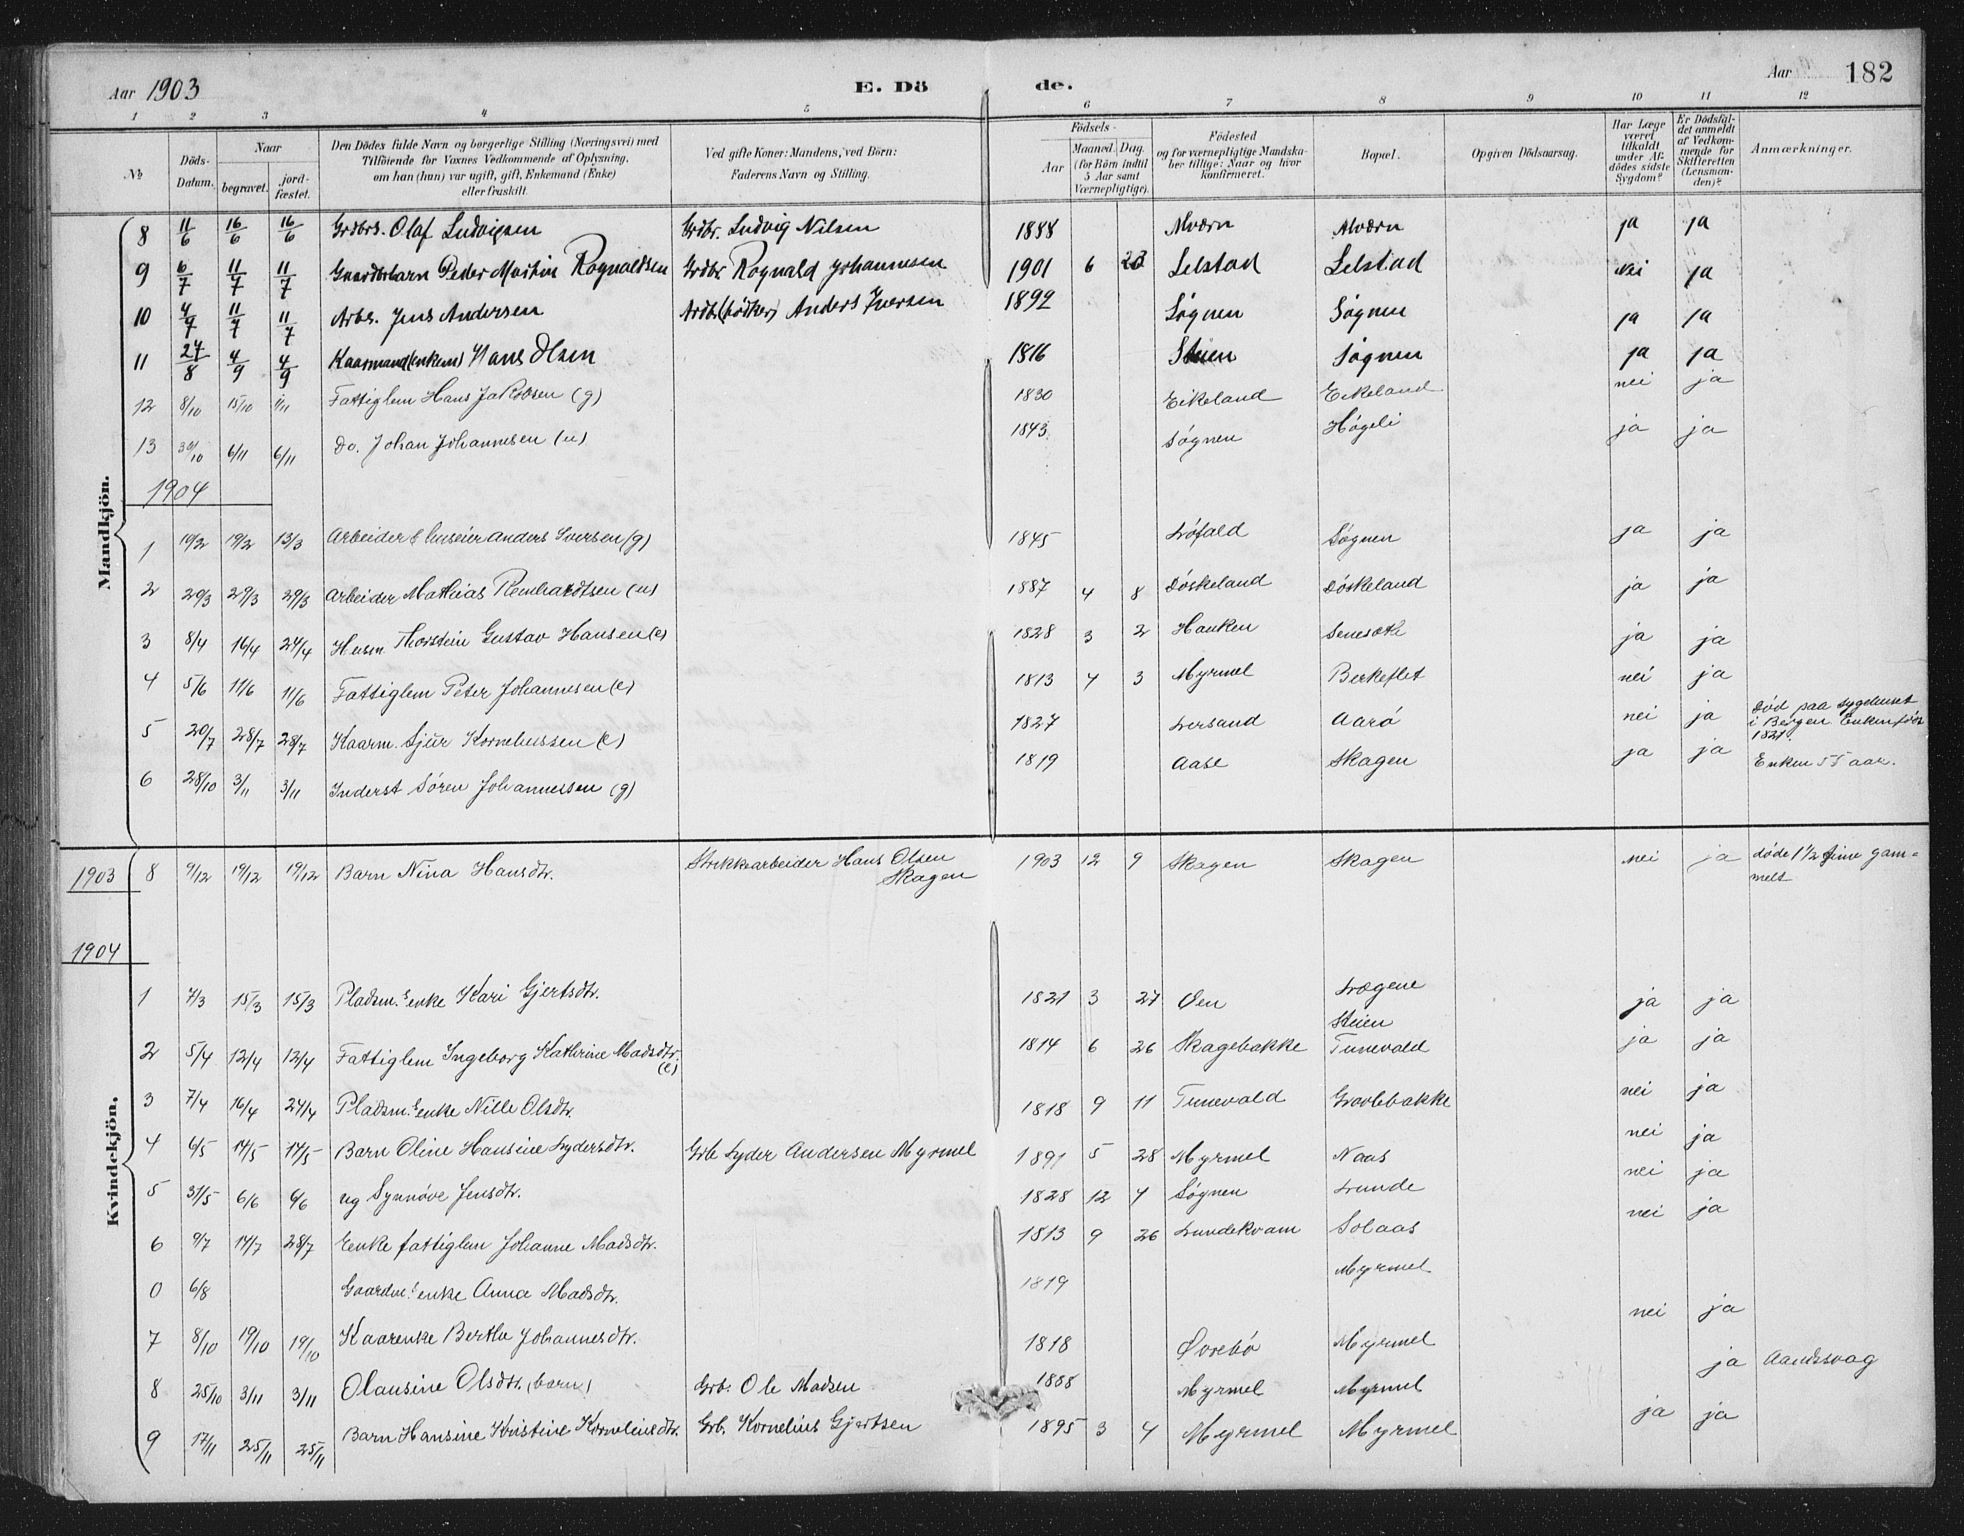 Aar 1903 E. Dö de. Aar 182
1 2 3 4 5 6 7 8 9 10 11 12
№ Döds-Datum. Naar begravet. jord-fæstet. Den Dödes fulde Navn og borgerlige Stilling (Næringsvei) med Tilföiende for Voxnes Vedkommende af Oplysning, om han (hun) var ugift, gift, Enkemand (Enke) eller fraskilt. Ved gifte Koner: Mandens, ved Börn: Faderens Navn og Stilling. Födsels- Aar Maaned. Dag. (for Börn indtil 5 Aar samt Værnepligtige). Födested og for værnepligtige Mandska-ber tillige: Naar og hvor konfirmeret. Bopæl. Opgiven Dödsaarsag. Har Læge været tilkaldt under Af-dödes sidste Sygdom? Er Dödsfal-det anmeldt af Vedkom-mende for Skifteretten (Lensman-den)? Anmærkninger.
Mandkjön.
8 11/6 16/6 16/6 Grdbrs. Olaf Ludvigsen Grdbr. Ludvig Nilsen 1888 Alværn Alværn ja ja
9 6/7 11/7 11/7 Gaardbrbarn Peder Martin Rognaldsen Grdbr Rognald Johannesen 1901 6 Lelstad Lelstad nei ja
10 4/7 11/7 11/7 Arbs. Jens Andersen Anders Iversen 1892 Søgnen Søgnen ja ja
11 24/8 4/9 4/9 Kaarmand (enkem) Hans Olsen 1816 Steien Søgnen ja ja
12 8/10 15/10 1/11 Fattiglem Hans Jakobsen (g) 1830 Eikeland Eikeland nei ja
13 30/10 6/11 6/11 Do. Johan Johannesen (u) 1843 Søgnen Høgeli ja ja
1904
1 10/2 19/2 13/3 Arbeider & huseier Anders Iversen (g) 1845 Løfald Søgnen ja ja
2 20/3 29/3 29/3 Arbeider Mathias Reinhardtsen (u) 1887 4 8 Døskeland Døskeland ja ja
3 8/4 16/4 24/4 Husm Thorstein Gustav Hansen (e) 1828 3 2 Hauken ja ja
4 5/6 11/6 11/6 Fattiglem Peter Johannesen (e) 1813 4 3 Myrmel Berkeflet nei ja
5 20/7 28/7 28/7 Kaarm. Sjur Korneliussen (e) 1827 Lersand Aarø nei ja Død paa sygehuset
i Bergen Enken født
1821.
6 28/10 3/11 3/11 Inderst Søren Johannessen (g) 1819 Aase Skagen ja ja Enken 55 aar.
1903 8 9/12 19/12 19/12 Barn Nina Hansdtr. Strikksarbeider Hans Olsen 1903 12 9 Skagen Skagen nei ja døde 1 1/2 time gam-
Skagen melt
1904
Kvindekjön.
1 7/3 15/3 15/3 Pladsm. enke Kari Gjertsdtr. 1821 3 27 Øen Lægene ja ja
Steien
2 5/4 12/4 12/4 Fattiglem Ingeborg Kathrine Madsdtr. 1814 6 26 Skagebakke Tunevald ja ja
(e)
3 7/4 16/4 24/4 Pladsm. enke Nille Olsdtr. 1818 9 11 Tunevald Grovlebakke nei ja
4 6/5 14/5 14/5 Barn Oline Hansine Lydersdtr. Grb Lyder Andersen Myrmel 1891 5 28 Myrmel Naas nei ja
5 31/5 6/6 6/6 ug Synnøve Jensdtr. 1828 12 4 Søgnen Lunde nei ja
6 9/7 14/7 28/7 Enke fattiglem Johanne Madsdtr. 1813 9 26 Lundekvam Solaas nei ja
0 6/8 Gaardm. enke Anna Madsdtr. 1819 Myrmel
7 8/10 19/10 19/10 Kaarenke Berthe Johannesdtr. 1818 Øvrebø Myrmel nei ja
8 25/10 3/11 3/11 Olausine Olsdtr. (barn) Grb. Ole Madsen 1888 Myrmel Myrmel ja Aandssvag
9 17/11 25/11 25/11 Barn Hansine Kristine Korneliusdtr. Grb. Kornelius Gjertsen 1895 3 4 Myrmel Myrmel ja ja